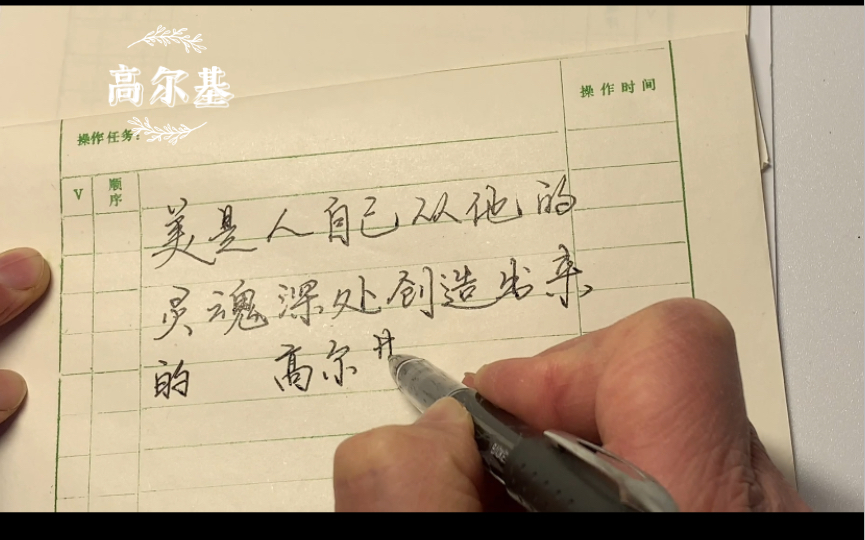 高尔基
操作时间
操作任务:
V
顺序
美是人自己从他的
灵魂深处创造出来
的 高尔